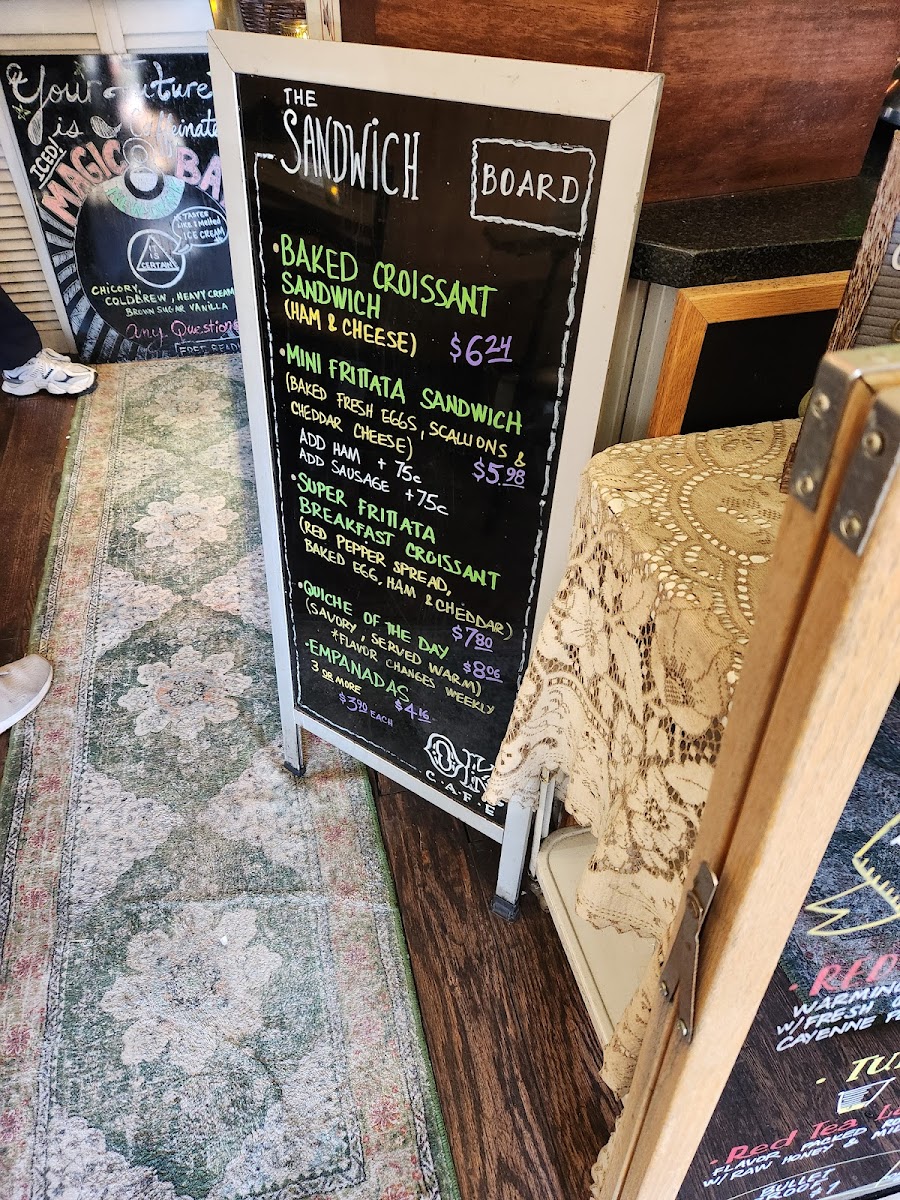 Your Future
is Caffeinated
ICED!
MAGIC
BA
TASTES
LIKE A Melted
ICE CREAM
CERTAIN
CHICORY,
COLDBREW, HEAVY CREAM
BROWN SUGAR VANILLA
any Questions
THE
SANDWiCH
BOARD
•BAKED CROISSANT
SANDWICH
(HAM & CHEESE) $6.24
•MINI FRITTATA SANDWICH
(BAKED FRESH EGGS, SCALLIONS &
CHEDDAR CHEESE) $5.98
ADD HAM +75c
ADD SAUSAGE +75c
•SUPER FRITTATA
BREAKFAST CROISSANT
(RED PEPPER SPREAD,
BAKED EGG, HAM & CHEDDAR)
$7.80
•QUICHE OF THE DAY
(SAVORY, SERVED WARM) $8.06
*FLAVOR CHANGES WEEKLY
•EMPANADAS
3 OR MORE $4.16
$3.90 EACH
C.A.F.E
• RED
WARMING
W/FRESH
CAYENNE
- TU
• Red Tea
FLAVOR PACKED
W/RAW HONEY &
BULLET
PROOF